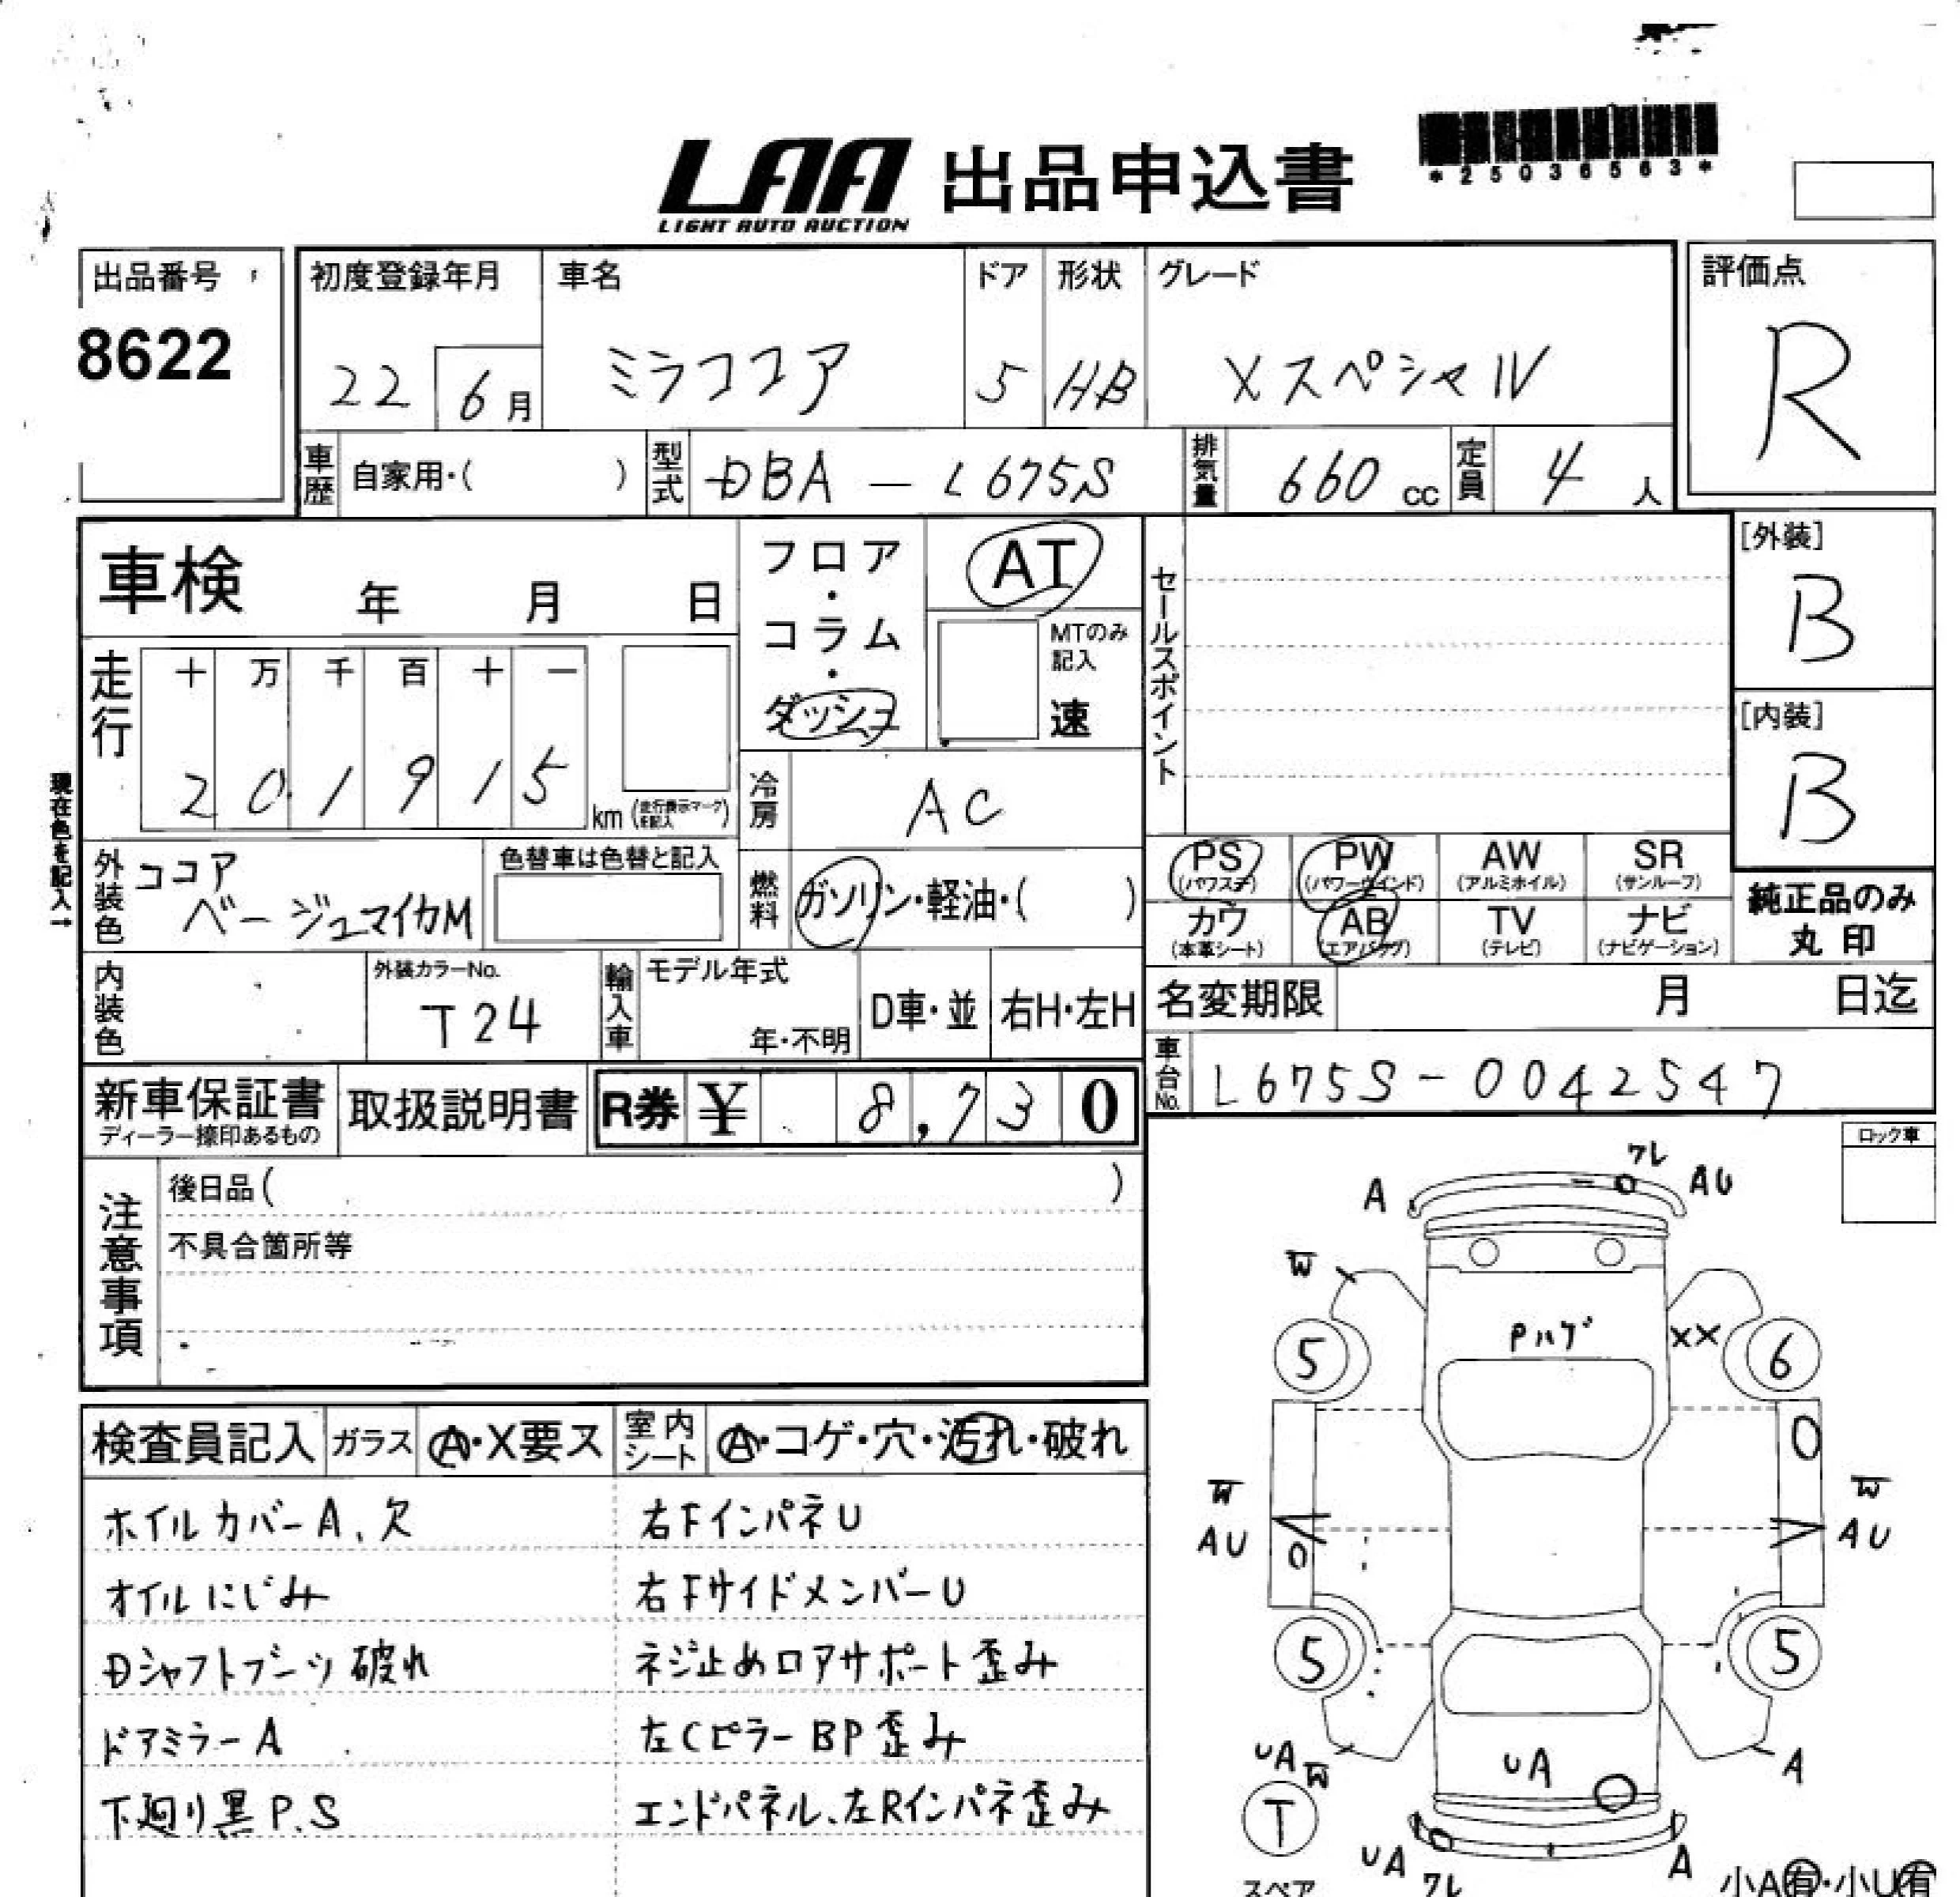 LAA 出品申込書
LIGHT AUTO AUCTION
*25036563*
出品番号
8622
初度登録年月
22 6月
車名
ミラココア
ドア
5
形状
HB
グレード
Xスペシャル
評価点
R
車歴 自家用・( )
型式 DBA - L675S
排気量 660 cc
定員 4 人
車検 年 月 日
フロア・コラム・ダッシュ
AT
MTのみ記入
速
セールスポイント
[外装]
B
[内装]
B
走行
十 万 千 百 十 一
2 0 1 9 1 5 km (走行表示マークを記入)
冷房 AC
現在色を記入→
外装色 ココア
ベージュマイカM
色替車は色替と記入
燃料 ガソリン・軽油・( )
PS (パワステ) PW (パワーウインド) AW (アルミホイル) SR (サンルーフ)
カワ (本革シート) AB (エアバッグ) TV (テレビ) ナビ (ナビゲーション)
純正品のみ
丸印
内装色
外装カラーNo.
T24
輸入車
モデル年式
年・不明
D車・並
右H・左H
名変期限 月 日迄
車台No. L675S-0042547
新車保証書
ディーラー捺印あるもの
取扱説明書
R券 ¥ 8,730
注意事項
後日品( )
不具合箇所等
ロック車
検査員記入 ガラス A・X要ス 室内シート A・コゲ・穴・汚れ・破れ
ホイルカバーA、欠
オイルにじみ
Dシャフトブーツ破れ
ドアミラーA
下廻り黒P.S
右FインパネU
右FサイドメンバーU
ネジ止めロアサポート歪み
左CピラーBP歪み
エンドパネル、左Rインパネ歪み
ワレ
A AU
W
Pハゲ XX
5 6
W W
AU AU
5 5
UA W UA A
T
スペア
UA ワレ A
小A有・小U有